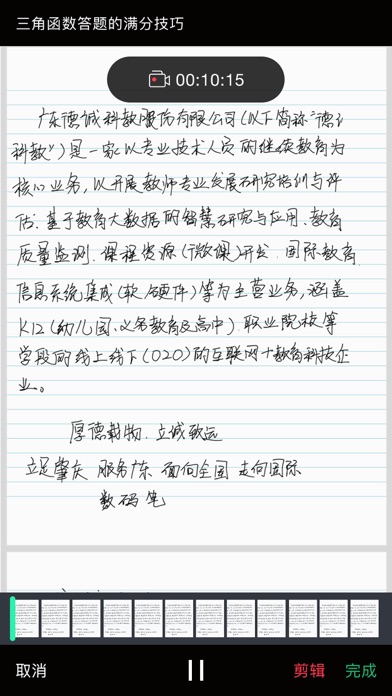 三角函数答题的满分技巧
00:10:15
广东德诚科教股份有限公司(以下简称"德诚
科教")是一家以专业技术人员的继续教育为
核心业务,以开展教师专业发展研究培训与评
估、基于教育大数据的智慧研究与应用、教育
质量监测、课程资源(微课)开发、国际教育、
信息系统集成(软/硬件)等为主营业务,涵盖
K12(幼儿园、义务教育及高中)、职业院校等
学段的线上线下(O2O)的互联网+教育科技企
业。
厚德载物、立诚致远
立足肇庆 服务广东 面向全国 走向国际
数码笔
取消
剪辑
完成